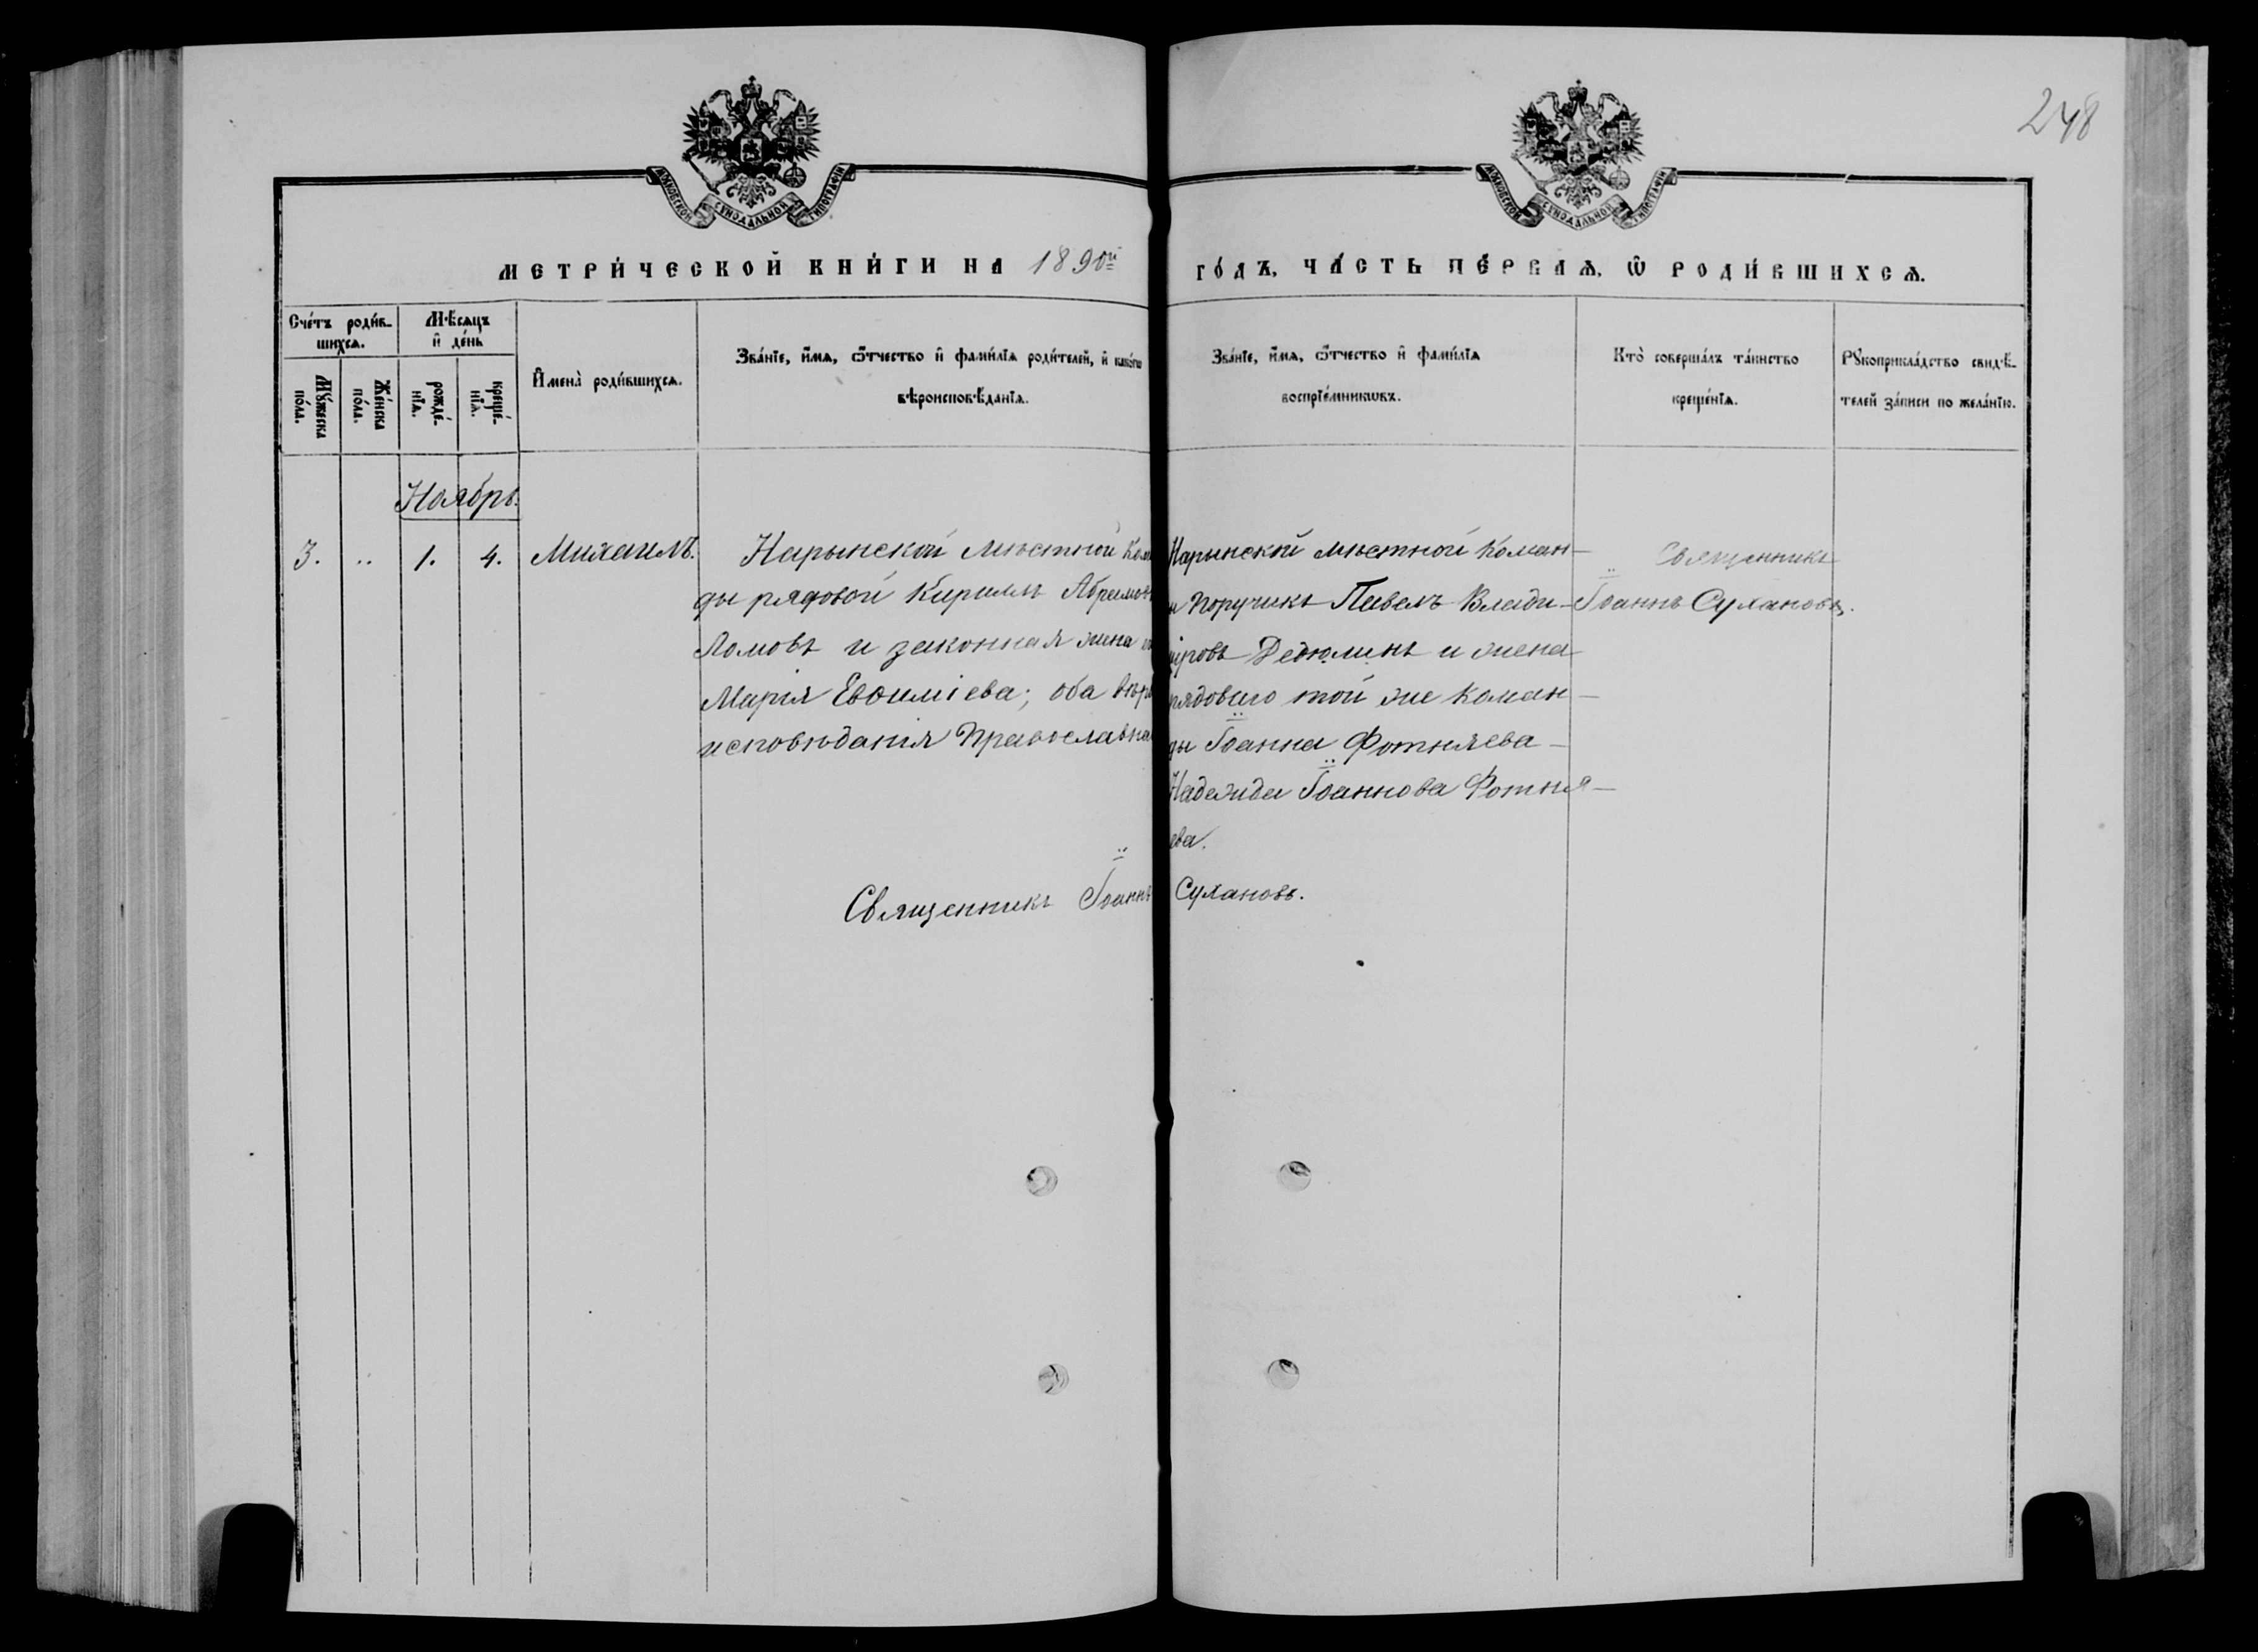 248
МОСКОВСКОЙ СУНОДАЛЬНОЙ ТИПОГРАФІИ
МОСКОВСКОЙ СУНОДАЛЬНОЙ ТИПОГРАФІИ
МЕТРИ́ЧЕСКОЙ КНИ́ГИ НА 1890й
ГО́ДЪ, ЧА́СТЬ ПЕ́РВАѦ, Ѡ҆ РОДИ́ВШИХСѦ.
Сче́тъ роди́в-
шихсѧ.
Мѣ́сѧцъ
и҆ де́нь
Мꙋ́жеска
по́ла.
Же́нска
по́ла.
рожде́-
нїѧ.
креще́-
нїѧ.
И҆мена̀ роди́вшихсѧ.
Зва́нїе, и҆́мѧ, ѻ҆́тчество и҆ фами́лїѧ роди́телей, и҆ како́гѡ
вѣроисповѣ́данїѧ.
Зва́нїе, и҆́мѧ, ѻ҆́тчество и҆ фами́лїѧ
воспрїе́мникѡвъ.
Кто̀ соверша́лъ та́инство
креще́нїѧ.
Рꙋкоприкла́дство свидѣ́-
телей за́писи по жела́нїю.
Ноябрь.
3. .. 1. 4. Михаилъ.
Нарынской мѣстной Ком
ды рядовой Кириллъ Абрамовъ
Ломовъ и законная жена
Марія Евѳиміева; оба вѣро
исповѣданія Православна
Нарынской мѣстной Коман-
ды Поручикъ Павелъ Влади-
міровъ Дедюлинъ и жена
рядоваго той же Коман-
ды Іоанна Фотняева -
Надежда Іоаннова Фотня-
ева.
Священникъ
Іоаннъ Сухановъ.
Священникъ Іоаннъ Сухановъ.